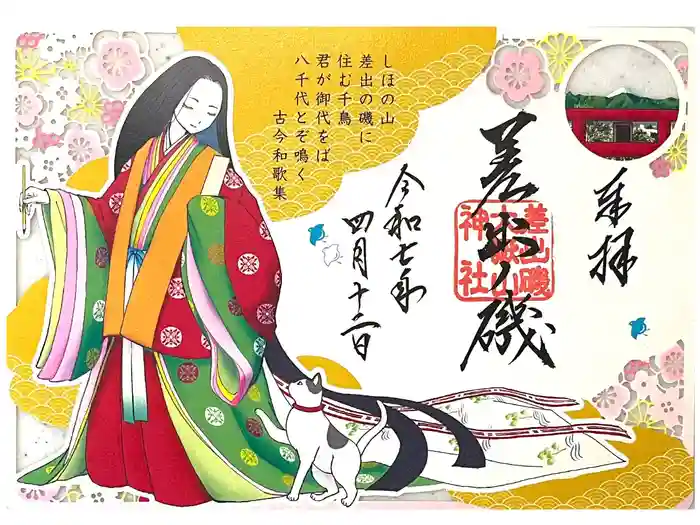 奉拝
差出ノ磯
差出磯
大嶽山
神社
しほの山
差出の磯に
住む千鳥
君が御代をば
八千代とぞ鳴く
古今和歌集
令和七年
四月十二日